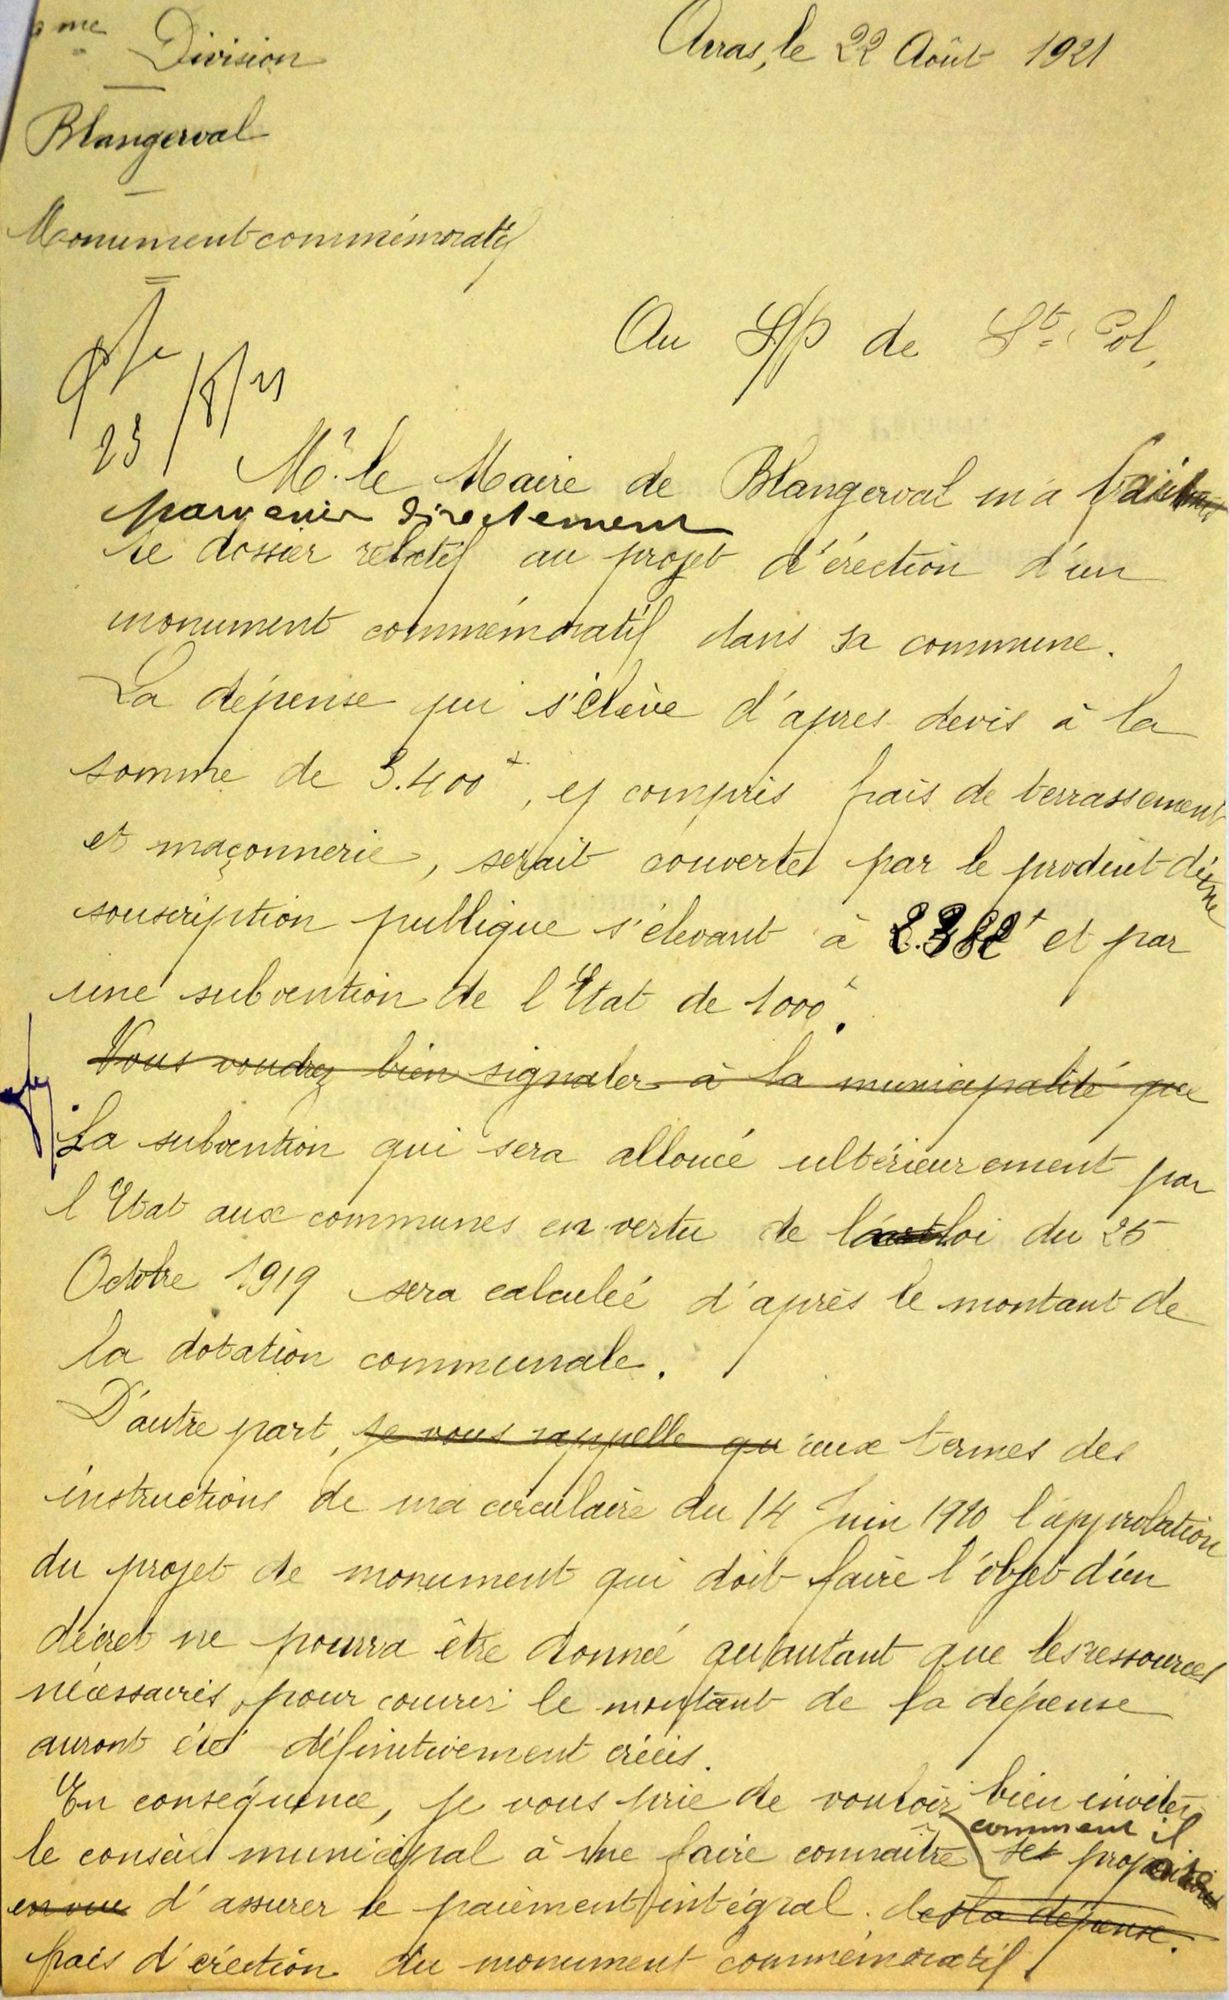 me Division
Arras, le 22 Août 1921
Blangerval
Monument commémoratif
Au S/P de St. Pol,
23/8/21
Mr. le Maire de Blangerval m'a fait
parvenir directement
le dossier relatif au projet d'érection d'un
monument commémoratif dans sa commune.
La dépense qui s'élève d'après devis à la
somme de 3.400f, y compris frais de terrassement
et maçonnerie, serait couverte par le produit d'une
souscription publique s'élevant à et par
une subvention de l'Etat de 1000f.
Vous voudrez bien signaler à la municipalité que
La subvention qui sera allouée ultérieurement par
l'Etat aux communes en vertu de la loi du 25
Octobre 1919 sera calculée d'après le montant de
la dotation communale.
D'autre part, je vous rappelle qu'aux termes des
instructions de ma circulaire du 14 Juin 1920 l'approbation
du projet de monument qui doit faire l'objet d'un
décret ne pourra être donnée qu'autant que les ressources
nécessaires pour couvrir le montant de la dépense
auront été définitivement créées.
En conséquence, je vous prie de vouloir bien inviter
comment il
le conseil municipal à me faire connaître ses propositions
en vue d'assurer le paiement intégral des la dépense.
frais d'érection du monument commémoratif.